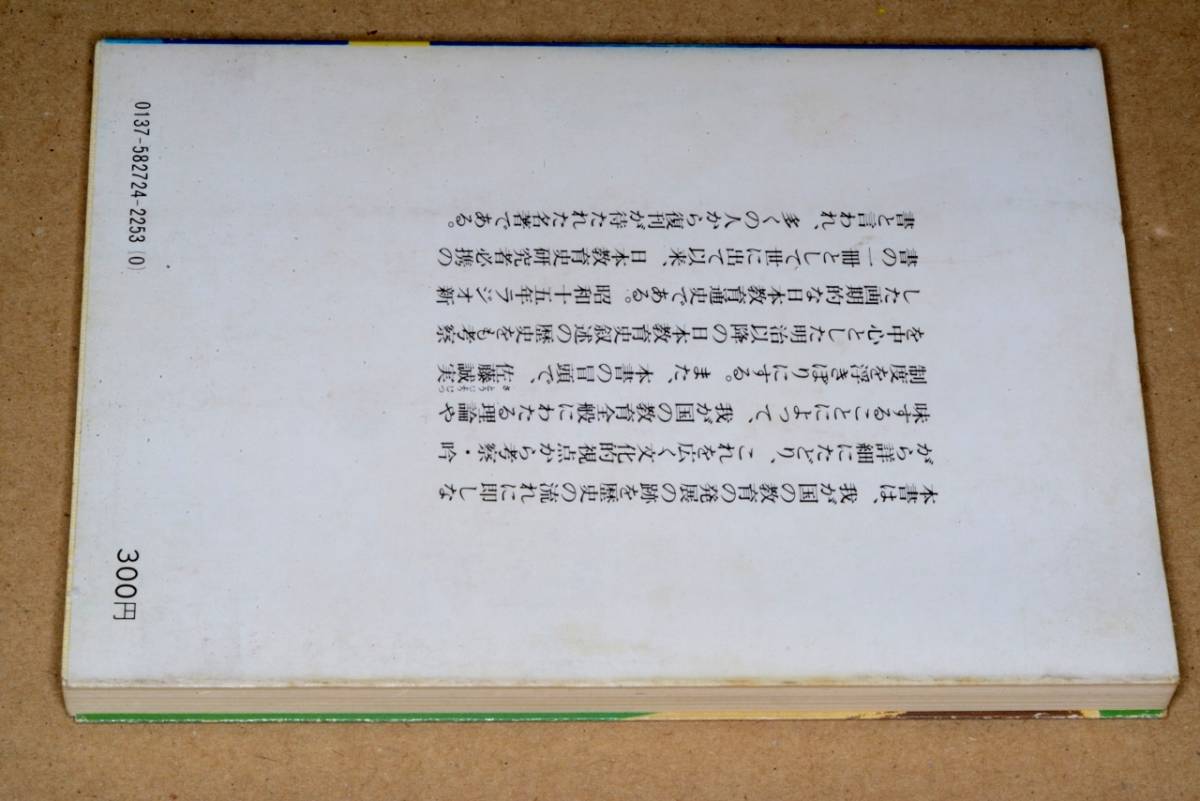 本書は、我が国の教育の発展の跡を歴史の流れに即しな
がら詳細にたどり、これを広く文化的視点から考察・吟
味することによって、我が国の教育全般にわたる理論や
制度を浮きぼりにする。また、本書の冒頭で、佐藤誠実
さとうじょうじつ
を中心とした明治以降の日本教育史叙述の歴史をも考察
した画期的な日本教育通史である。昭和十五年ラジオ新
書の一冊として世に出て以来、日本教育史研究者必携の
書と言われ、多くの人から復刊が待たれた名著である。
0137-582724-2253(0)
300円